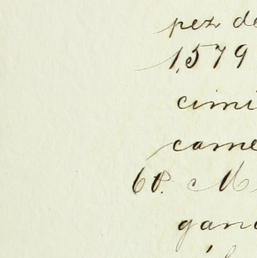 pez de
1,579
cimi
came
68. M
gano